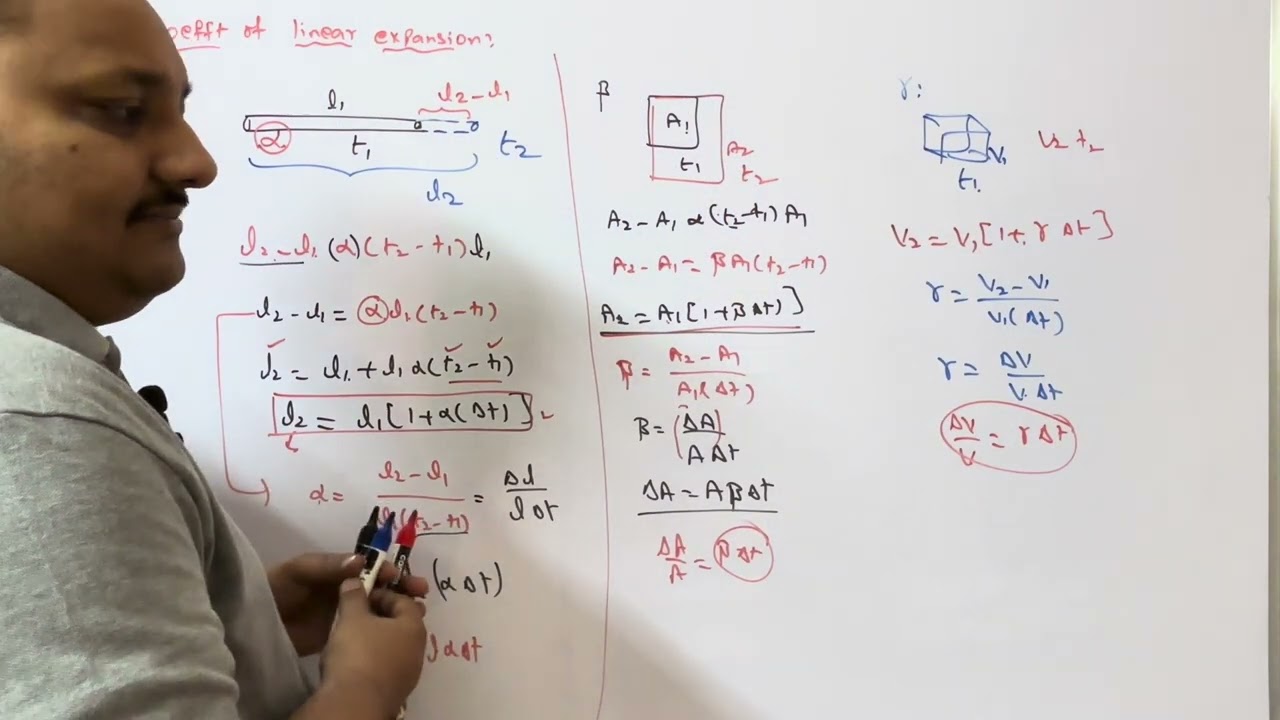 oefft of linear expansion:
l₁
l₂-l₁
α
t₁
t₂
l₂
l₂-l₁ (α)(t₂-t₁)l₁
l₂-l₁ = αl₁(t₂-t₁)
l₂ = l₁+l₁α(t₂-t₁)
l₂ = l₁[1+α(Δt)]
α= l₂-l₁ / l₁(t₂-t₁) = Δl / lΔt
(αΔt)
lαΔt
β
A₁
t₁
A₂
t₂
A₂-A₁ α(t₂-t₁)A₁
A₂-A₁= βA₁(t₂-t₁)
A₂=A₁[1+βΔt)]
β= A₂-A₁ / A₁(Δt)
β= (ΔA / AΔt
ΔA=AβΔt
ΔA/A = βΔt
γ:
V₁
t₁.
V₂ t₂
V₂=V₁[1+γΔt]
γ= V₂-V₁ / V₁(Δt)
γ= ΔV / V.Δt
ΔV/V = γΔt